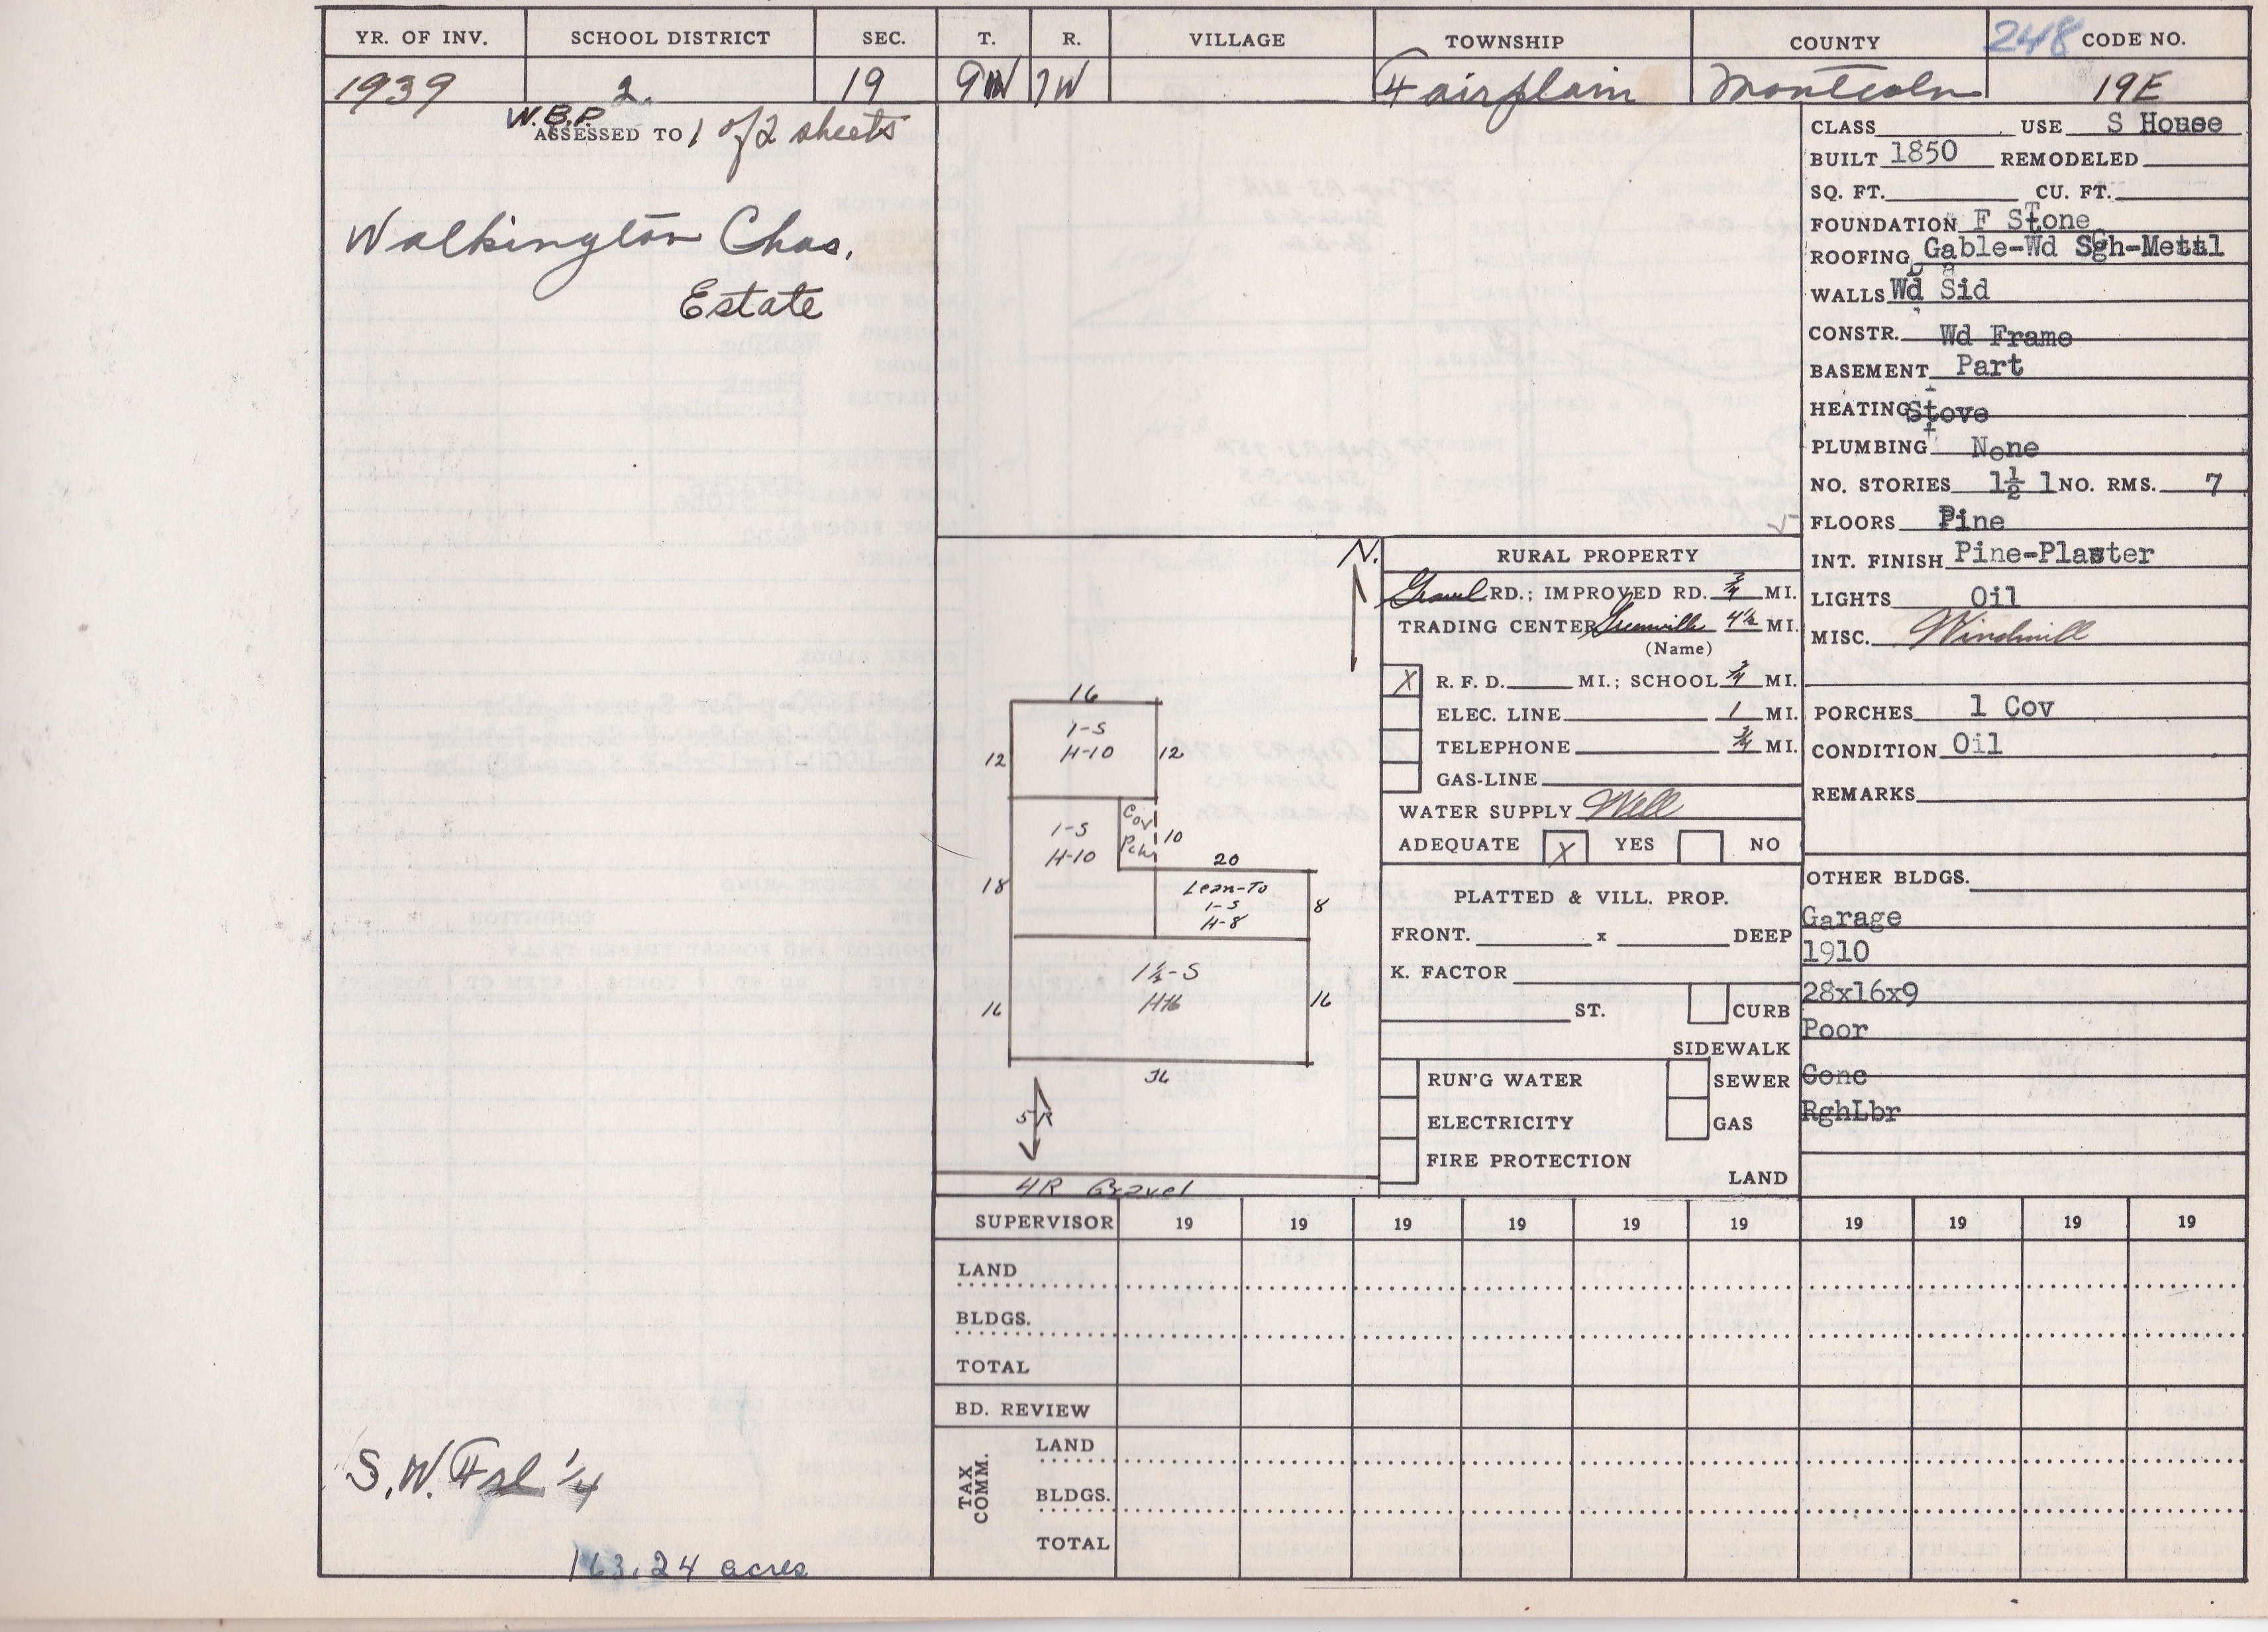 YR. OF INV. SCHOOL DISTRICT SEC. T. R. VILLAGE TOWNSHIP COUNTY 248 CODE NO.
1939 2. 19 9N 7W Fairplain Montcalm 19E
W.B.P.
ASSESSED TO 1 of 2 sheets
Walkington Chas.
Estate
S.W. Frl 1/4
163.24 acres
N.
16
1-S
H-10
12
12
Cov
Pch
10
1-S
H-10
18
20
Lean-To
1-S
H-8
8
1½-S
H16
16
16
36
5R
4R Gravel
RURAL PROPERTY
Gravel RD.; IMPROVED RD. 3/4 MI.
TRADING CENTER Greenville 4½ MI.
(Name)
X R. F. D. MI.; SCHOOL 3/4 MI.
ELEC. LINE 1 MI.
TELEPHONE 3/4 MI.
GAS-LINE
WATER SUPPLY Well
ADEQUATE X YES NO
PLATTED & VILL. PROP.
FRONT. x DEEP
K. FACTOR
ST. CURB
SIDEWALK
RUN'G WATER SEWER
ELECTRICITY GAS
FIRE PROTECTION
LAND
CLASS USE S House
BUILT 1850 REMODELED
SQ. FT. CU. FT.
FOUNDATION F STone
ROOFING Gable-Wd Sgh-Mettl
WALLS Wd Sid
CONSTR. Wd Frame
BASEMENT Part
HEATING Stove
PLUMBING None
NO. STORIES 1½ 1 NO. RMS. 7
FLOORS Pine
INT. FINISH Pine-Plaster
LIGHTS Oil
MISC. Windmill
PORCHES 1 Cov
CONDITION Oil
REMARKS
OTHER BLDGS.
Garage
1910
28x16x9
Poor
Conc
RghLbr
SUPERVISOR 19 19 19 19 19 19 19 19 19 19
LAND
BLDGS.
TOTAL
BD. REVIEW
TAX COMM.
LAND
BLDGS.
TOTAL